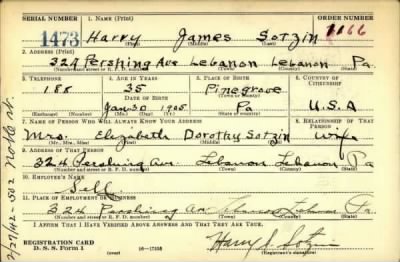 SERIAL NUMBER 1. NAME (Print) ORDER NUMBER
1473 Harry James Sotzin 1166
(First) (Middle) (Last)
2. ADDRESS (Print)
324 Pershing Ave Lebanon Lebanon Pa.
(Number and street or R. F. D. number) (Town) (County) (State)
3. TELEPHONE 4. AGE IN YEARS 5. PLACE OF BIRTH 6. COUNTRY OF CITIZENSHIP
188 35 Pinegrove
DATE OF BIRTH (Town or county)
Jan 30 1905 Pa U.S.A
(Exchange) (Number) (Mo.) (Day) (Yr.) (State or country)
7. NAME OF PERSON WHO WILL ALWAYS KNOW YOUR ADDRESS 8. RELATIONSHIP OF THAT PERSON
Mrs. Elizabeth Dorothy Sotzin Wife
(Mr., Mrs., Miss) (First) (Middle) (Last)
9. ADDRESS OF THAT PERSON
324 Pershing Ave. Lebanon Lebanon Pa
(Number and street or R. F. D. number) (Town) (County) (State)
10. EMPLOYER'S NAME
Self
11. PLACE OF EMPLOYMENT OR BUSINESS
324 Pershing av Lebanon Lebanon Pa.
(Number and street or R. F. D. number) (Town) (County) (State)
I AFFIRM THAT I HAVE VERIFIED ABOVE ANSWERS AND THAT THEY ARE TRUE.
REGISTRATION CARD
D. S. S. Form 1 (over) 16—17105 Harry J. Sotzin
(Registrant's signature)
2/27/42-502